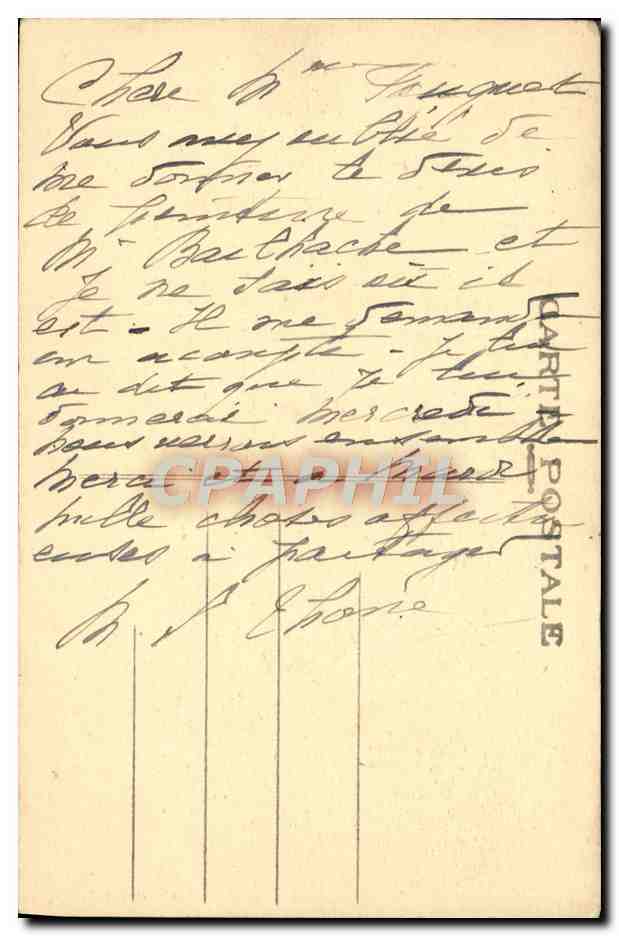 Chere Mme Fouquet
Vous avez oublié de
me donner le devis
de peinture de
Mr Bailhache et
je ne sais où il
est - Il me demande
un acompte - Je lui
ai dit que je lui
donnerai mercredi
nous verrons ensemble
merci et à
mille choses affectu
euses à partager
M
CARTE POSTALE
CPAPHIL